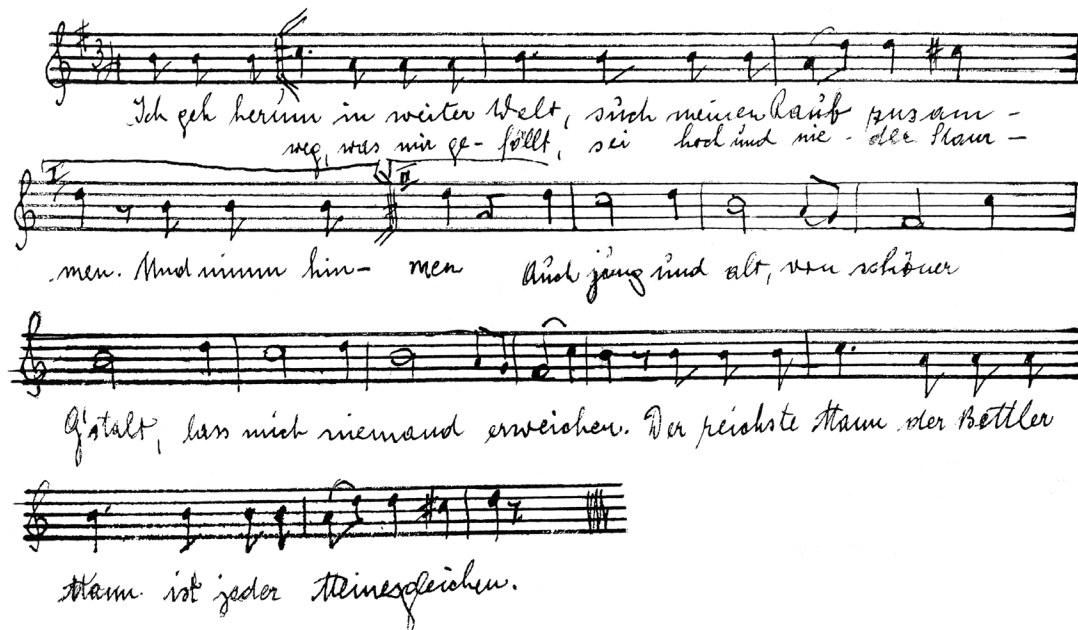 Ich geh herum in weiter Welt, such meinen Raub zusam -
weg, was mir ge- föllt, sei hoch und nie - der Stam -
I II
men. Und nimm hin- men Auch jung und alt, von schöner
G'stalt, lass mich niemand erweichen. Der reichste Mann der Bettler
Mann ist jeder Meinesgleichen.